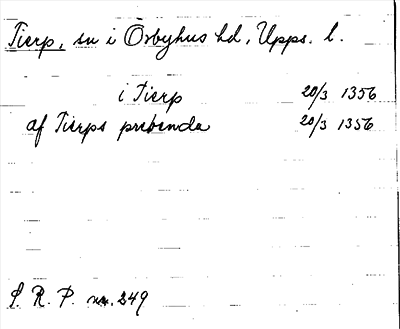 Tierp, sn i Örbyhus hd, Upps. l.
i Tierp 20/3 1356
af Tierps prebenda 20/3 1356
S. R. P. nr. 249